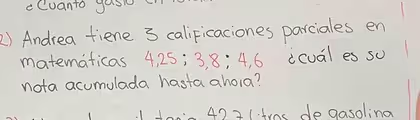 ¿Cuanto gastó en
2) Andrea tiene 3 calificaciones parciales en
matemáticas 4,25 ; 3,8 ; 4,6 ¿cuál es su
nota acumulada hasta ahora?
42,7 litros de gasolina